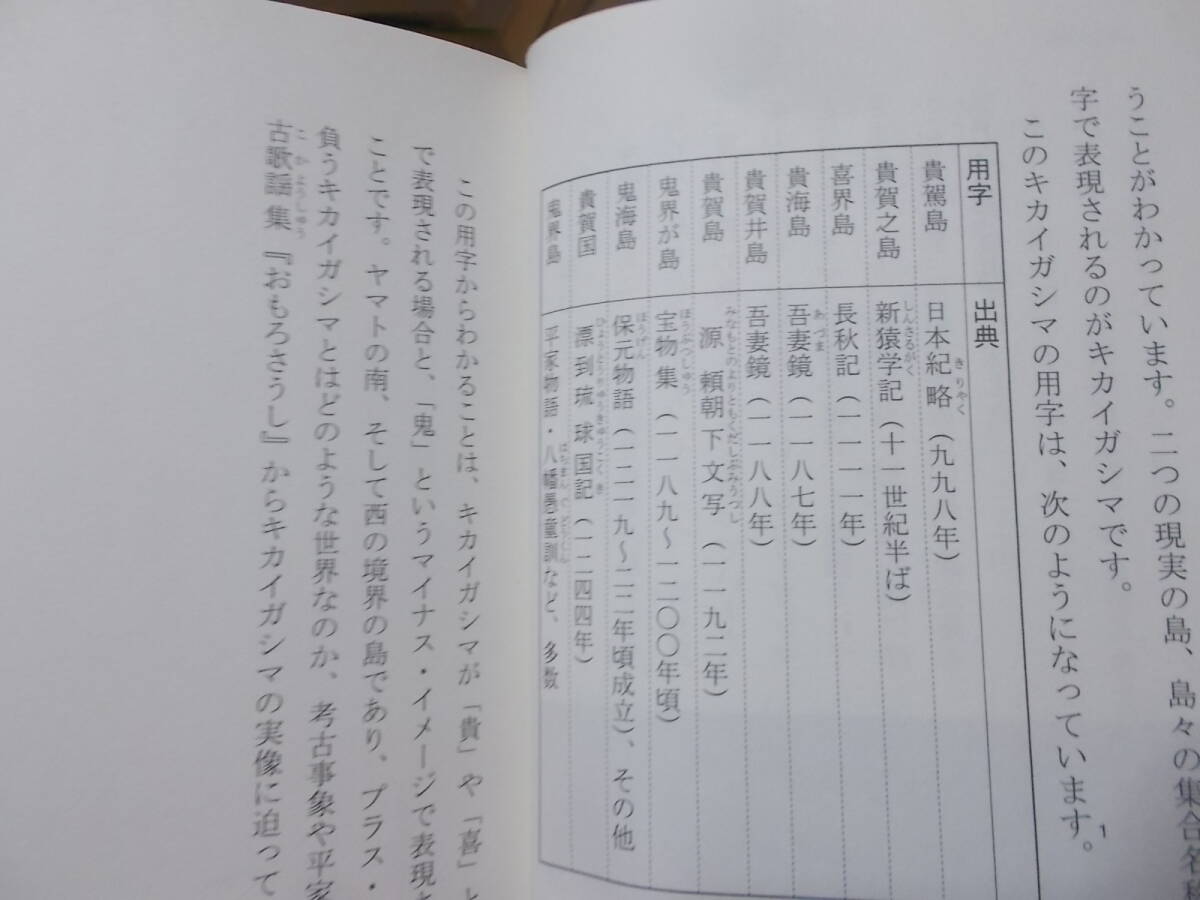 うことがわかっています。二つの現実の島、島々の集合名
字で表現されるのがキカイガシマです。
このキカイガシマの用字は、次のようになっています。
1
用字 出典
貴駕島 日本紀略（九九八年）
きりやく
貴賀之島 新猿学記（十一世紀半ば）
しんさるがく
喜界島 長秋記（一一一一年）
貴海島 吾妻鏡（一一八七年）
あづま
貴賀井島 吾妻鏡（一一八八年）
貴賀島 源頼朝下文写（一一九二年）
みなもとのよりともくだしぶみうつし
鬼界が島 宝物集（一一八九～一二〇〇年頃）
ほうぶつしゅう
鬼海島 保元物語（一二一九～二二年頃成立）、その他
ほうげん
貴賀国 漂到琉球国記（一二四四年）
ひょうとうりゅうきゅうこくき
鬼界島 平家物語・八幡愚童訓など、多数
はちまんぐどうくん
この用字からわかることは、キカイガシマが「貴」や「喜」と
で表現される場合と、「鬼」というマイナス・イメージで表現
ことです。ヤマトの南、そして西の境界の島であり、プラス・
負うキカイガシマとはどのような世界なのか、考古事象や平家
古歌謡集『おもろさうし』からキカイガシマの実像に迫って
こかようしゅう